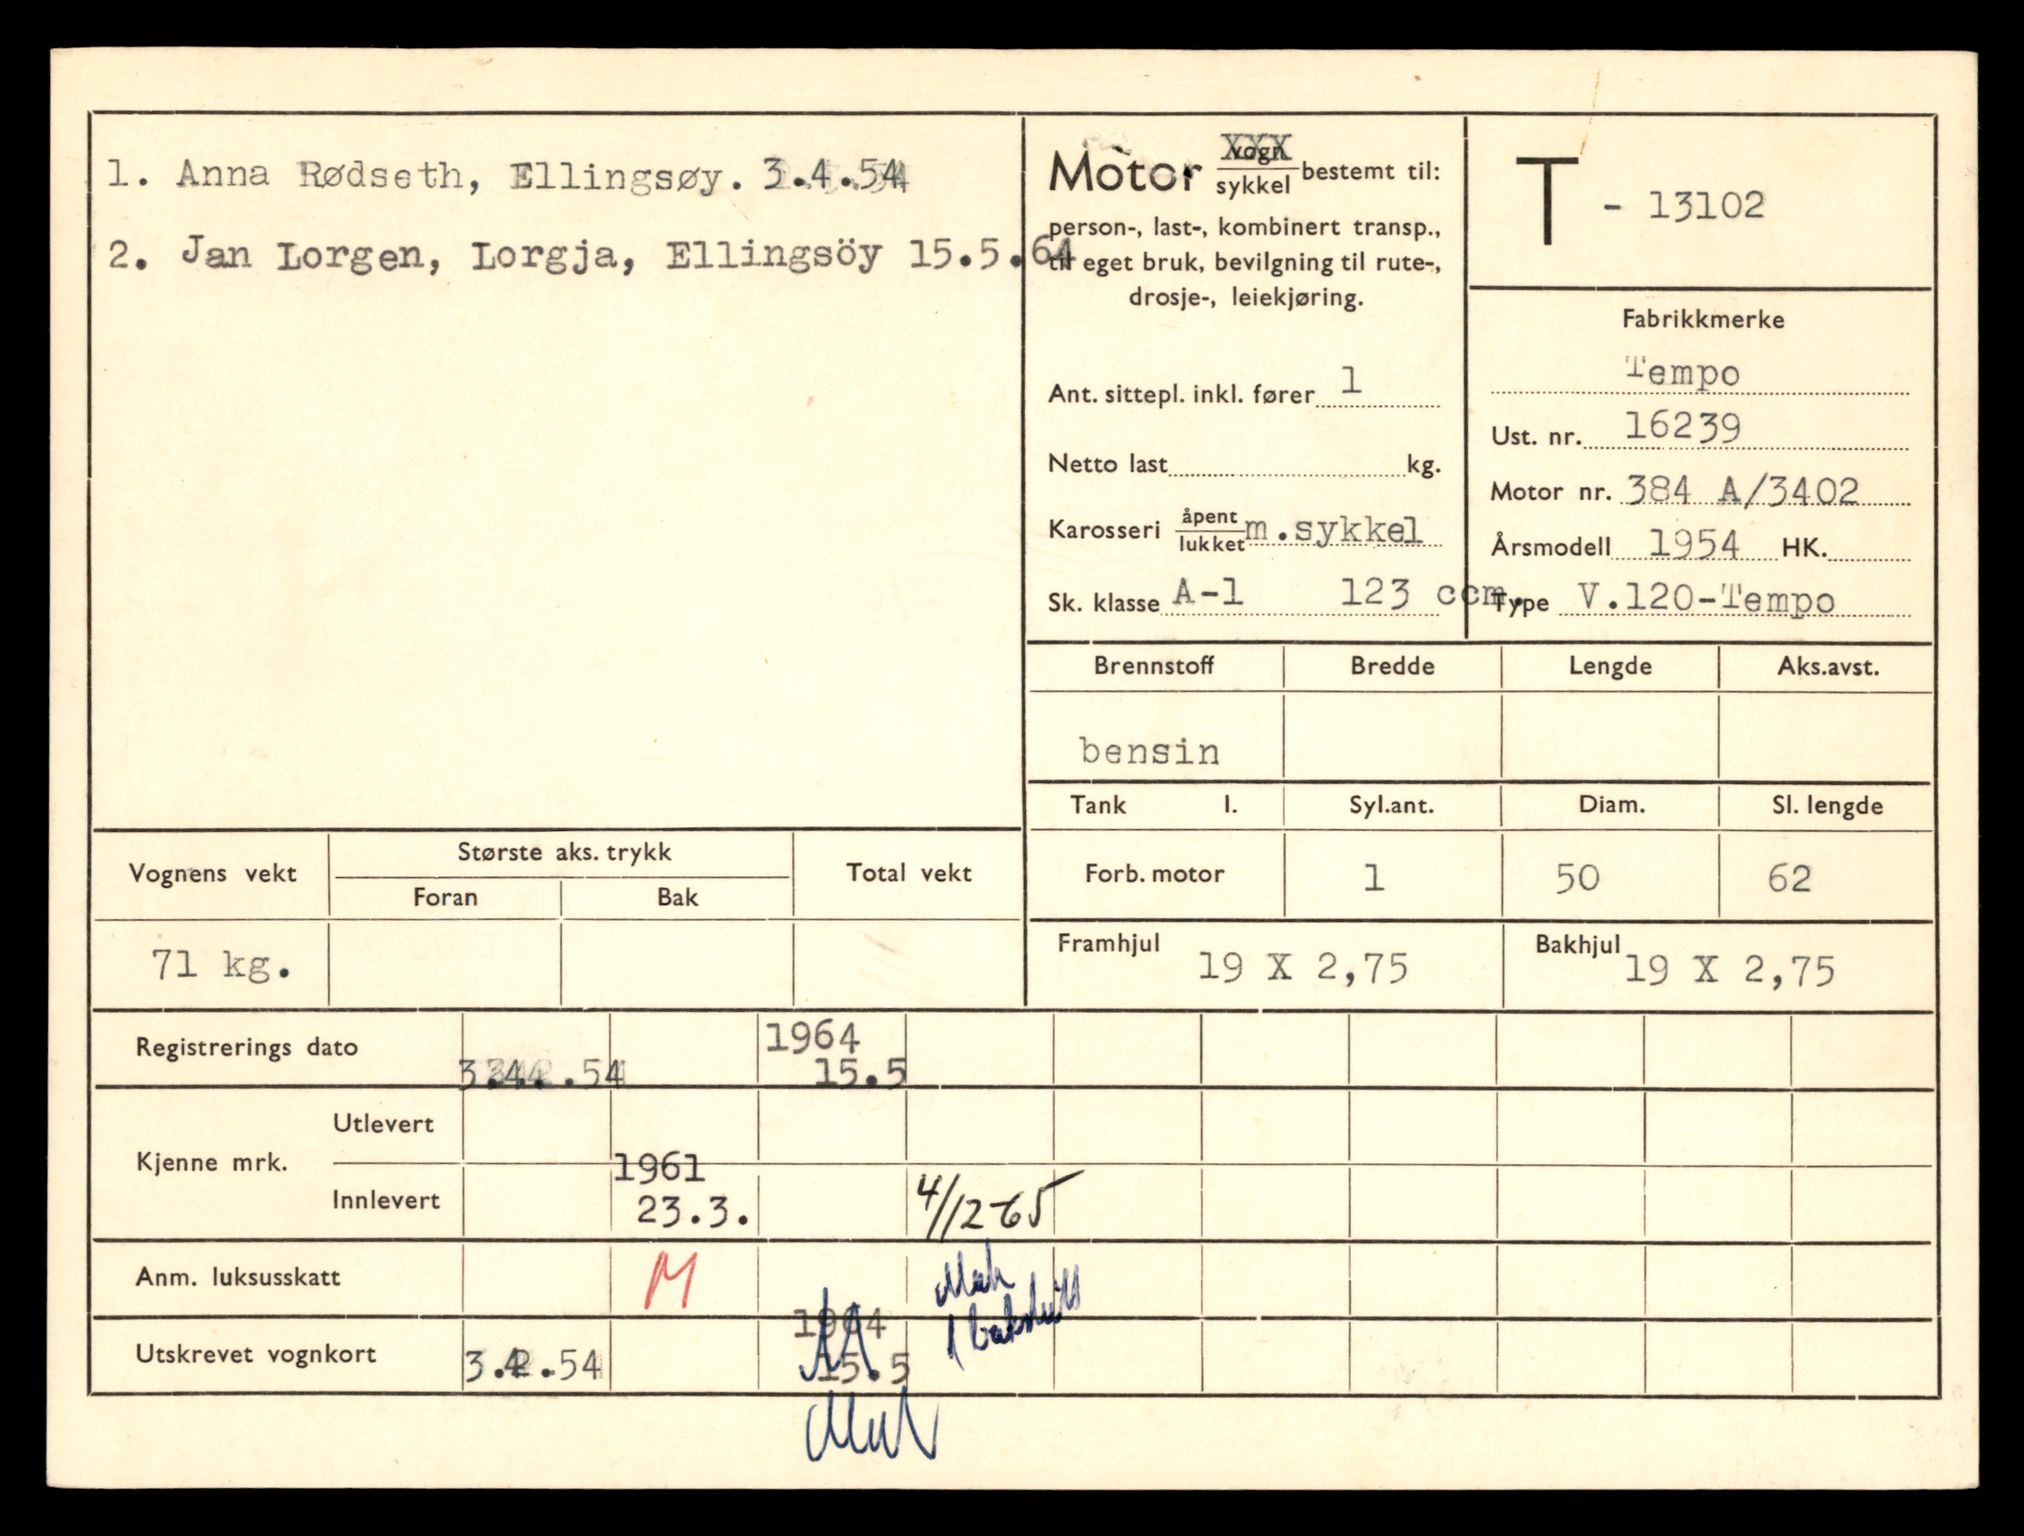 1. Anna Rødseth, Ellingsøy. 3.4.54
2. Jan Lorgen, Lorgja, Ellingsöy 15.5.64
Motor vogn XXX
sykkel bestemt til:
person-, last-, kombinert transp.,
til eget bruk, bevilgning til rute-,
drosje-, leiekjøring.
Ant. sittepl. inkl. fører 1
Netto last kg.
Karosseri åpent
lukket m.sykkel
Sk. klasse A-1 123 ccm.
T - 13102
Fabrikkmerke
Tempo
Ust. nr. 16239
Motor nr. 384 A/3402
Årsmodell 1954 HK.
Type V.120-Tempo
Brennstoff Bredde Lengde Aks.avst.
bensin
Tank l. Syl.ant. Diam. Sl. lengde
Forb. motor 1 50 62
Framhjul 19 X 2,75 Bakhjul 19 X 2,75
Vognens vekt Største aks. trykk Total vekt
Foran Bak
71 kg.
Registrerings dato 3.4.54 1964
15.5
Kjenne mrk. Utlevert
Innlevert 1961
23.3. 4/12-65
Anm. luksusskatt M
Utskrevet vognkort 3.4.54 1964
15.5